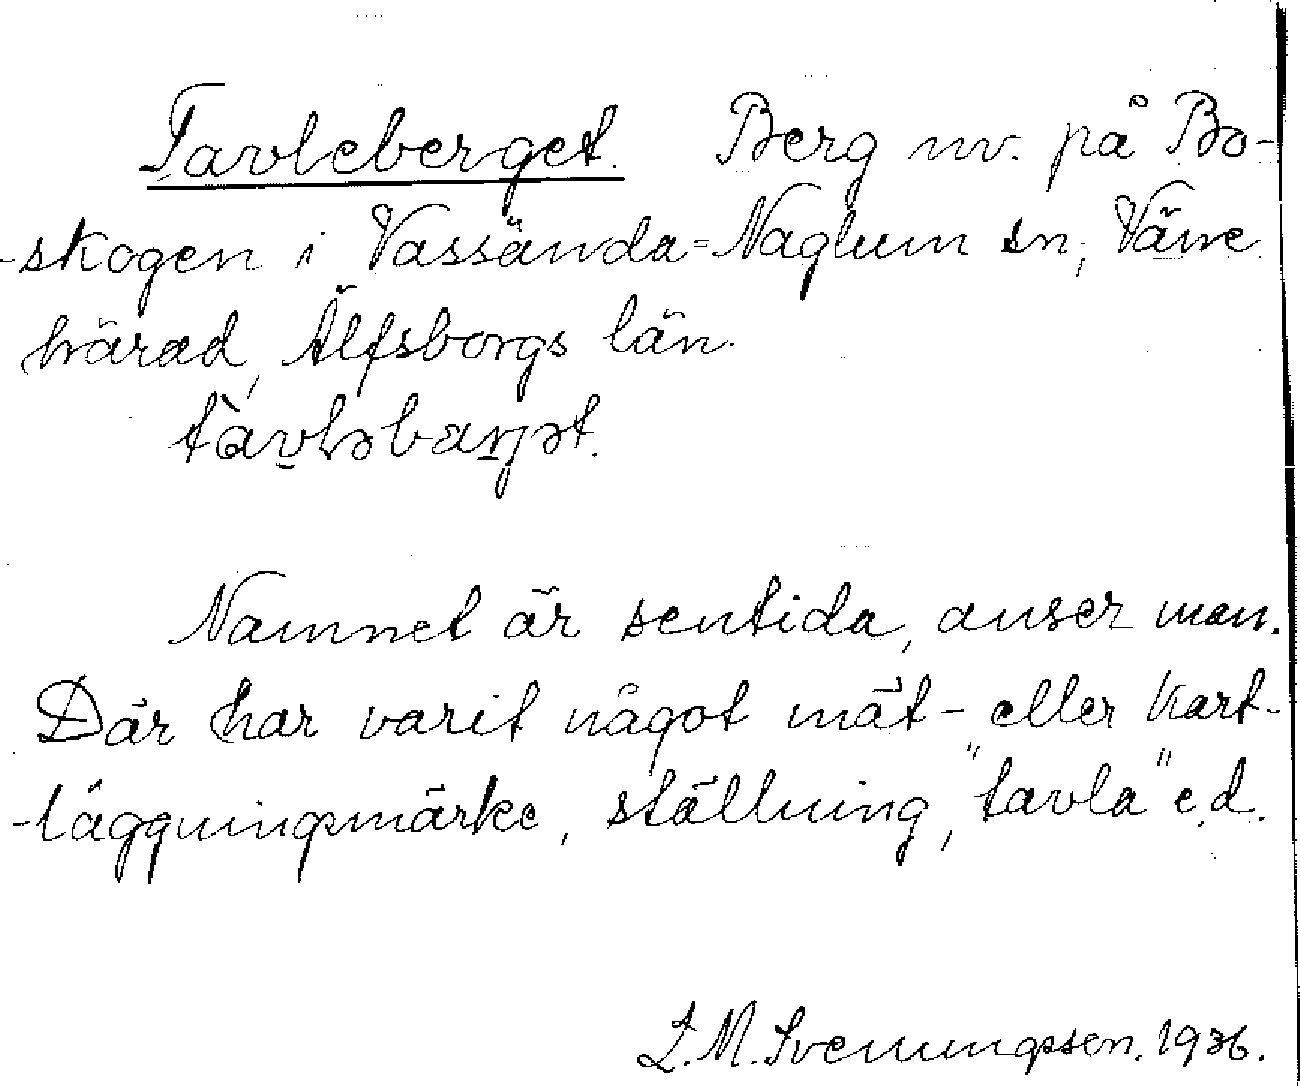 Tavleberget. Berg nv. på Bo-
-skogen i Vassända-Naglum sn, Väne
härad, Älfsborgs län.
Namnet är sentida, anser man.
Där har varit något mät- eller kart-
-läggningsmärke, ställning, "tavla" e.d.
L.M. Svenungsson. 1936.